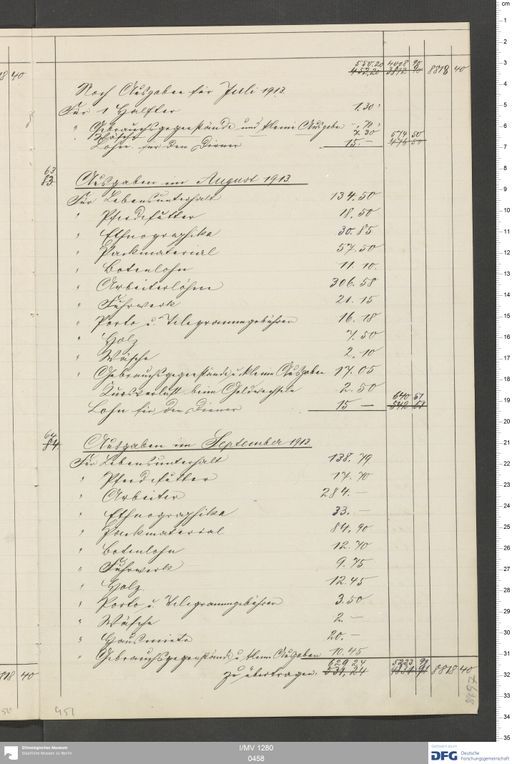 550.20 4008 90 8818 40
Noch Ausgaben für Juli 1913
Für 1 Halfter 1.30
" Gebrauchsgegenstände und kleine Ausgaben -.70
" Wäsche 7.30 574 50
Lohn für den Diener 15.—
63
83 Ausgaben im August 1913
Für Lebensunterhalt 134.50
" Pferdefutter 18.50
" Ethnographika 30.85
" Packmaterial 57.50
" Botenlohn 11.10.
" Arbeiterlöhne 306.58
" Fuhrwerk 21.15
" Porto u. Telegrammgebühren 16.18
" Holz 7.50
" Wäsche 2.10
" Gebrauchsgegenstände u. kleine Ausgaben 17.05
" Kursverlust beim Geldwechseln 2.50
Lohn für den Diener 15 — 640 51
64
84 Ausgaben im September 1913
Für Lebensunterhalt 138.79
" Pferdefutter 17.70
" Arbeiter 284.—
" Ethnographika 33.—
" Packmaterial 84.90
" Botenlohn 12.70
" Fuhrwerk 9.75
" Holz 12.45
" Porto u. Telegrammgebühren 3.50
" Wäsche 2.—
" Hausmiete 20.—
" Gebrauchsgegenstände u. kleine Ausgaben 10.45
zu übertragen 629.24 5223 91 8818 40
451
Ethnologisches Museum
Staatliche Museen zu Berlin
I/MV 1280
0458
DFG Deutsche
Forschungsgemeinschaft